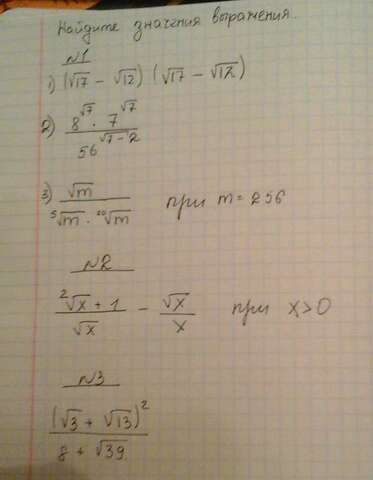 Найдите значения выражения.
№1
1) (√17 - √12) (√17 - √12)
2) 8^√7 · 7^√7 / 56^(√7-2)
3) √m / (⁵√m · ²⁰√m) при m = 256
№2
(2√x + 1)/√x - √x/x при x>0
№3
(√3 + √13)² / (8 + √39)